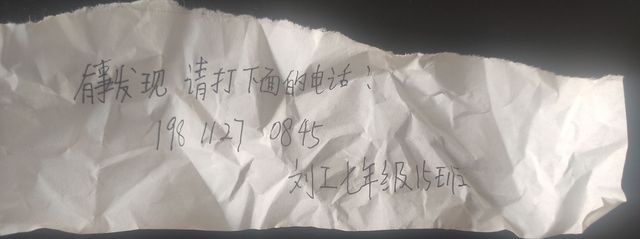 有事发现 请打下面的电话：
198 1127 0845
刘工七年级15班